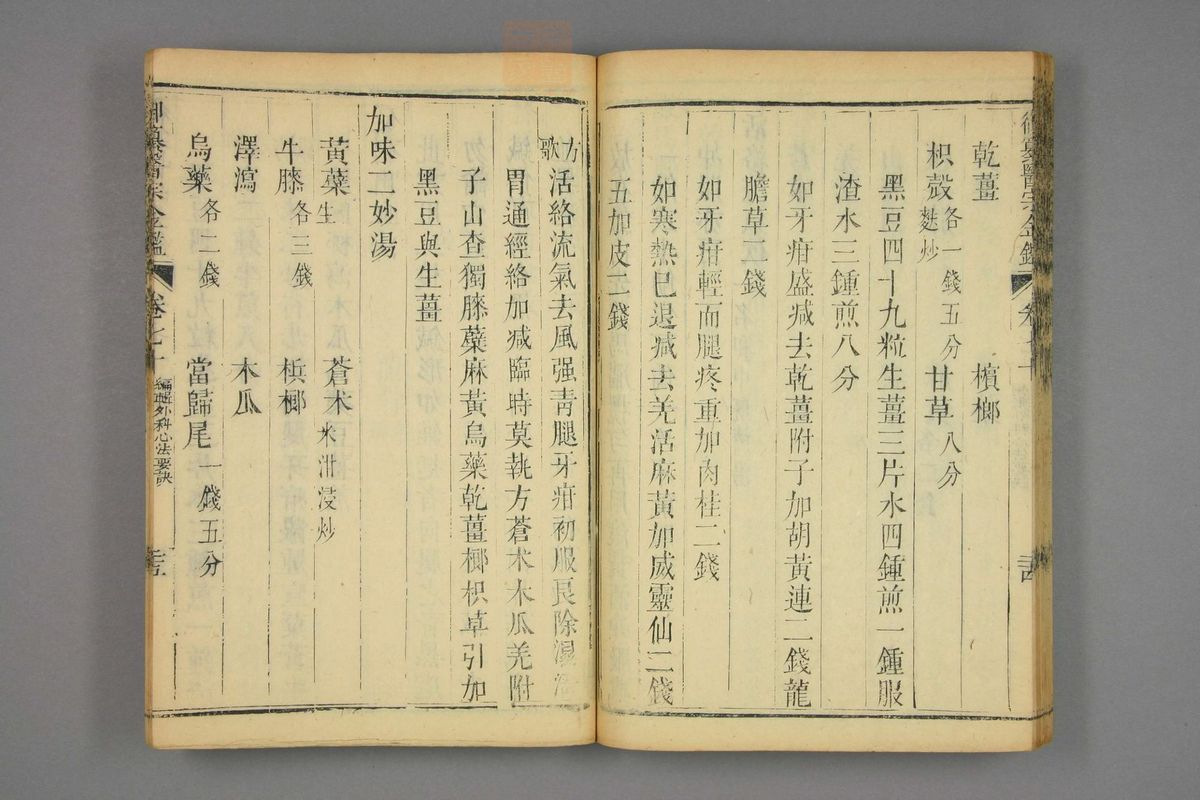 乾薑 檳榔
枳殼各一錢五分麩炒 甘草八分
黑豆四十九粒生薑三片水四鍾煎一鍾服
渣水三鍾煎八分
如牙疳盛減去乾薑附子加胡黃連二錢龍
膽草五錢
如牙疳輕而腿疼重加肉桂二錢
如寒熱已退減去羌活麻黃加威靈仙二錢
五加皮二錢
方歌活絡流氣去風强青腿牙疳初服良除濕
胃通經絡加減臨時莫執方蒼术木瓜羌附
子山查獨膝蘗麻黃烏藥乾薑榔枳草引加
黑豆與生薑
加味二妙湯
黃蘗生 蒼术米泔浸炒
牛膝各三錢 檳榔
澤瀉 木瓜
烏藥各二錢 當歸尾一錢五分
御纂醫宗金鑑 卷七十 編輯外科心法要訣